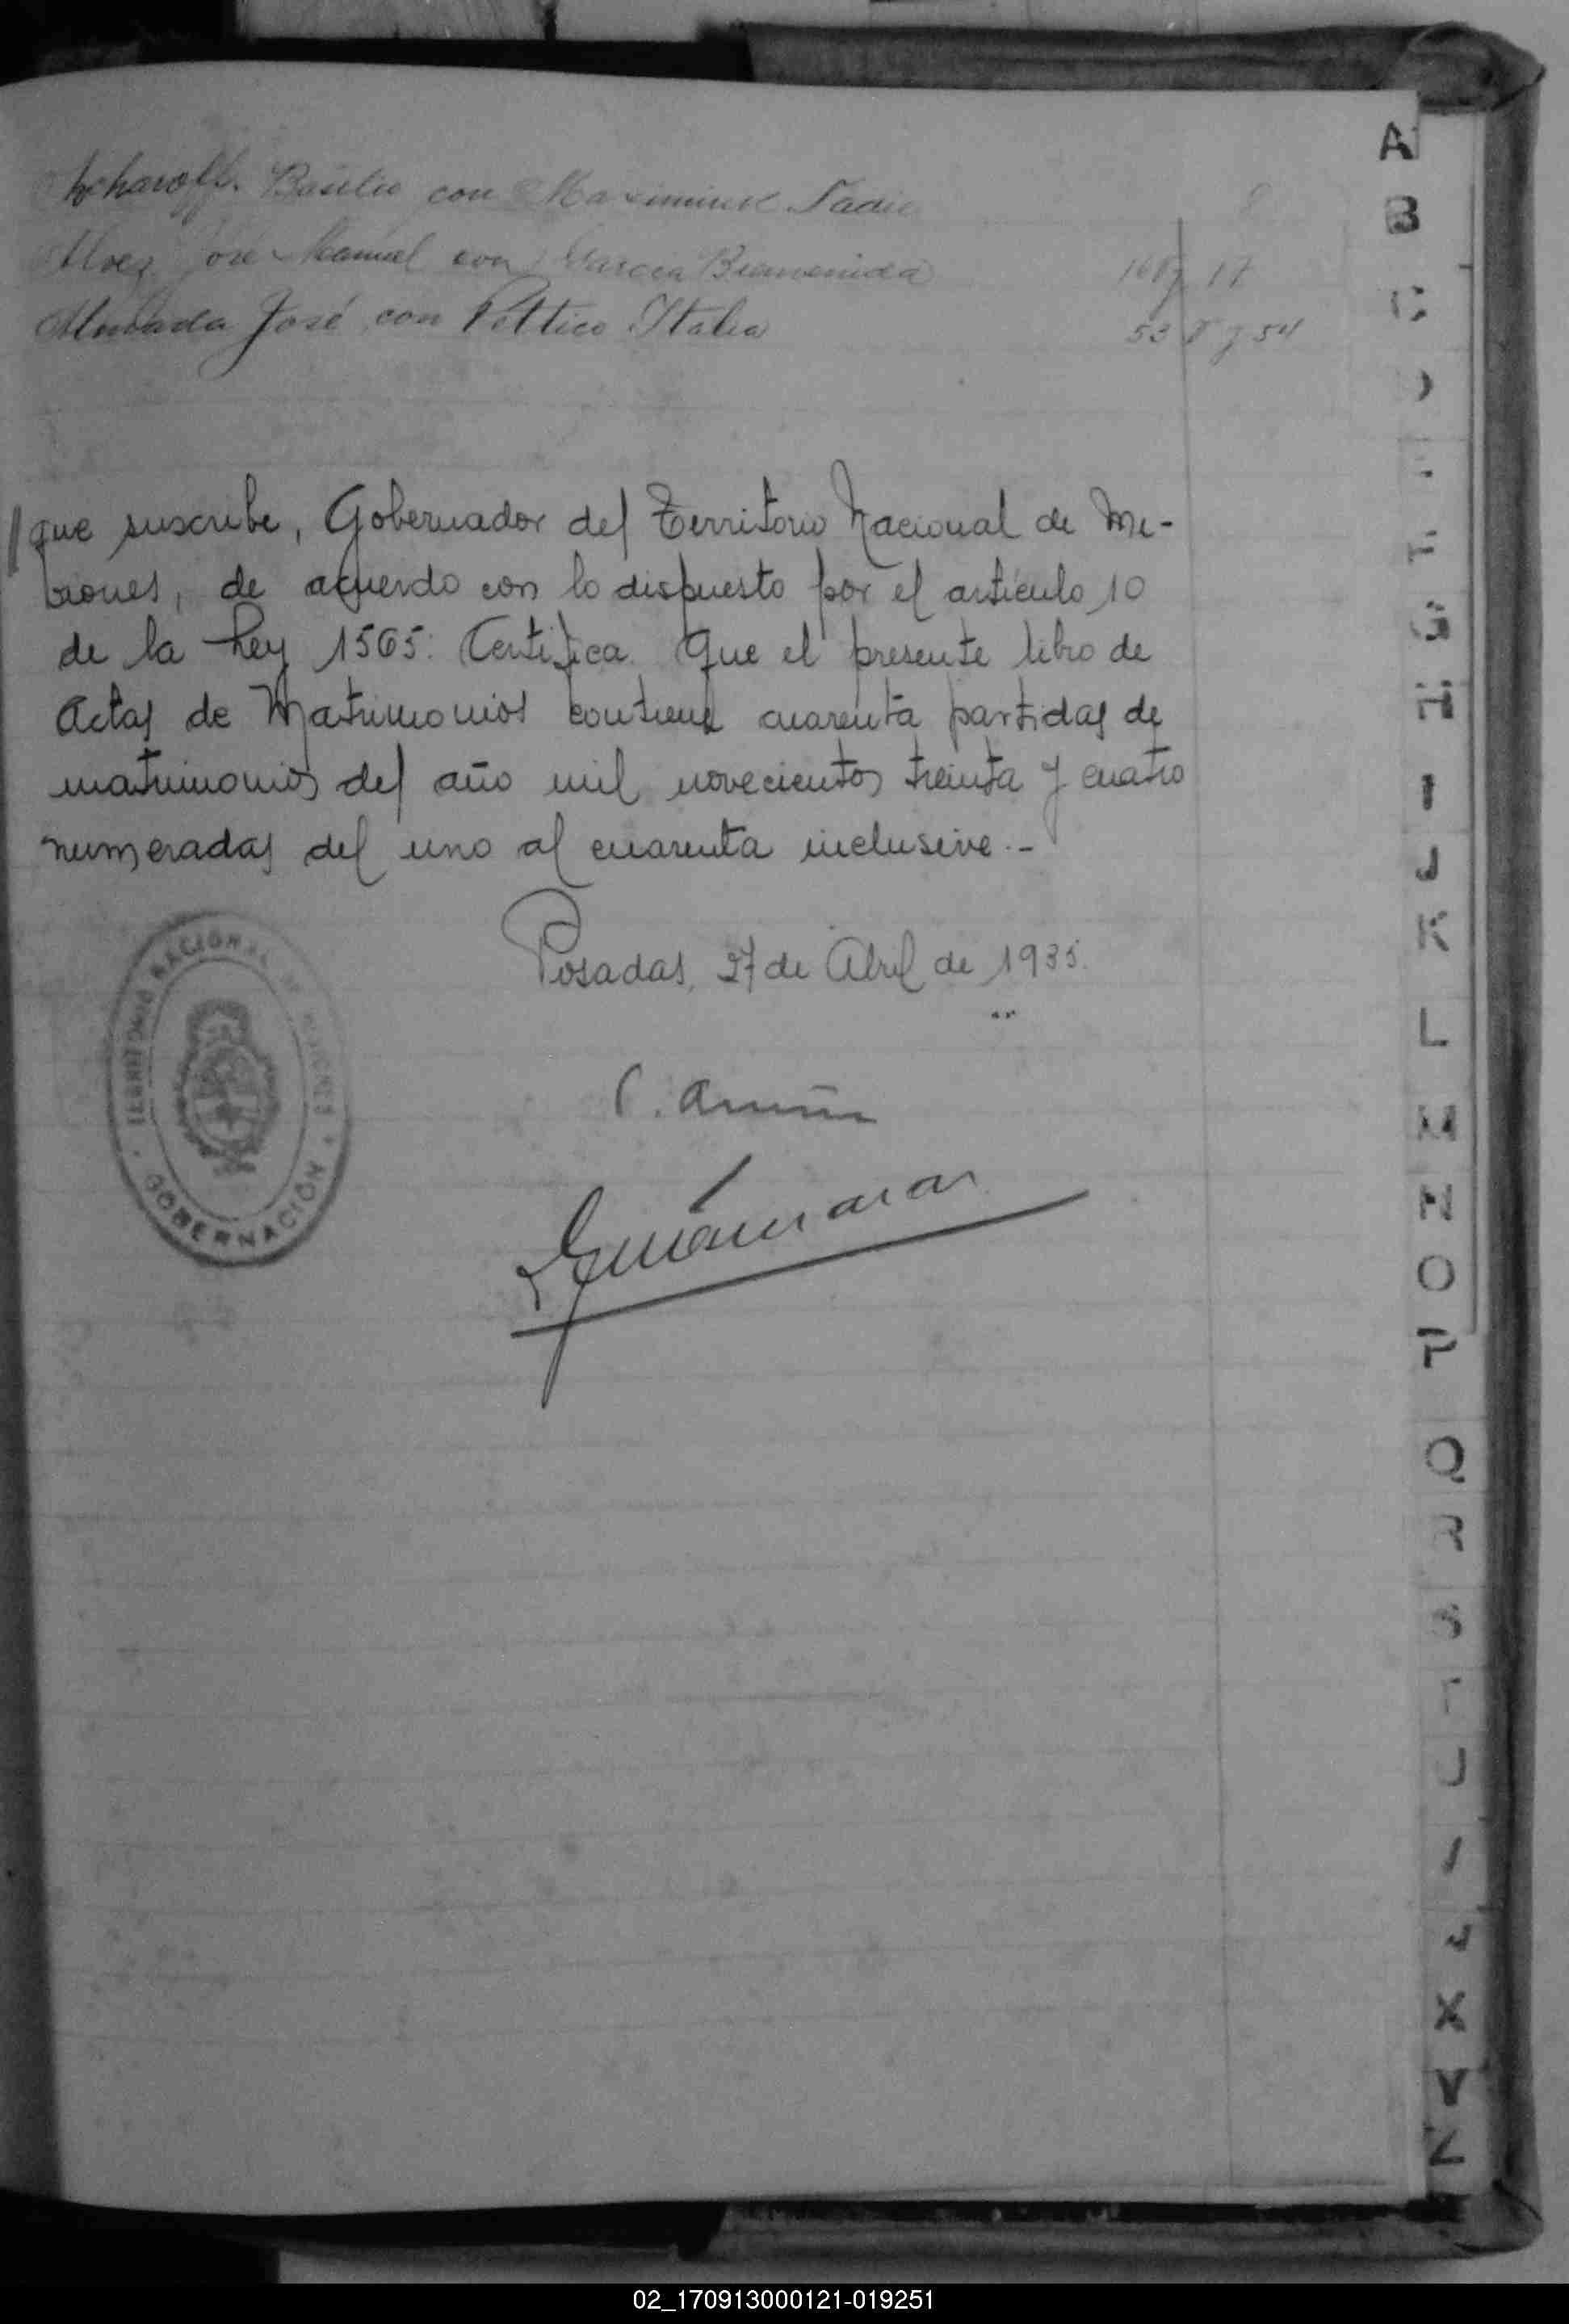 Basilio con
José Manuel con Garcia Bienvenida 17
José con Italia 53 y 54
que suscribe, Gobernador del Territorio Nacional de Mi-
siones, de acuerdo con lo dispuesto por el artículo 10
de la Ley 1565: Certifica. Que el presente libro de
Actas de Matrimonios contiene cuarenta partidas de
matrimonios del año mil novecientos treinta y cuatro
numeradas del uno al cuarenta inclusive.-
Posadas, 27 de Abril de 1935.
TERRITORIO NACIONAL DE MISIONES
GOBERNACIÓN
A
B
C
D
E
F
G
H
I
J
K
L
M
N
O
P
Q
R
S
T
U
V
X
Y
Z
02_170913000121-019251